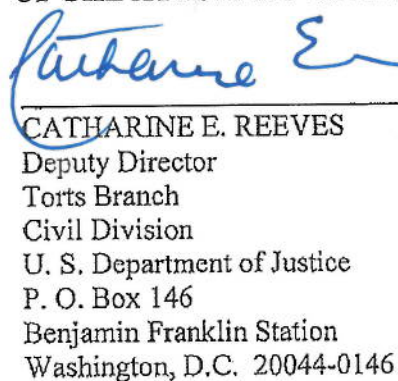 Catharine E
CATHARINE E. REEVES
Deputy Director
Torts Branch
Civil Division
U. S. Department of Justice
P. O. Box 146
Benjamin Franklin Station
Washington, D.C. 20044-0146